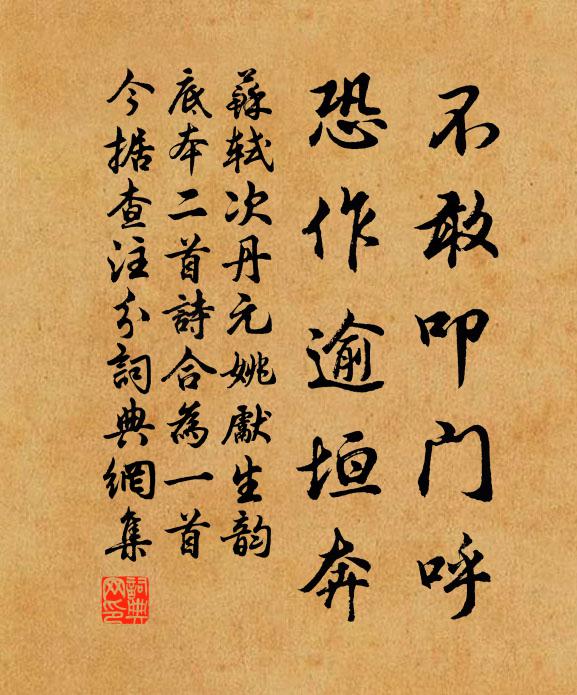 不敢叩门呼
恐作逾垣奔
蘇軾次丹元姚獻生韵
底本二首詩合為一首
今据查注分詞典網集
詞典
网印